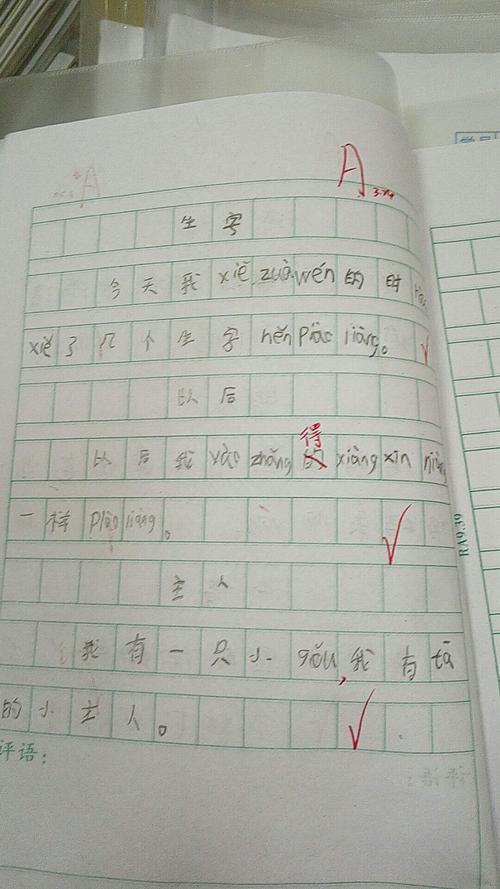 A
生字
今天我xiě zuòwén的时
xiě了几个生字hěn piào liàng。
以后
得
以后我yào zhǎng的xiàng xīn
一样piào liàng。
主人
我有一只小gǒu,我有tā
的小主人。
评语:
RA9.39